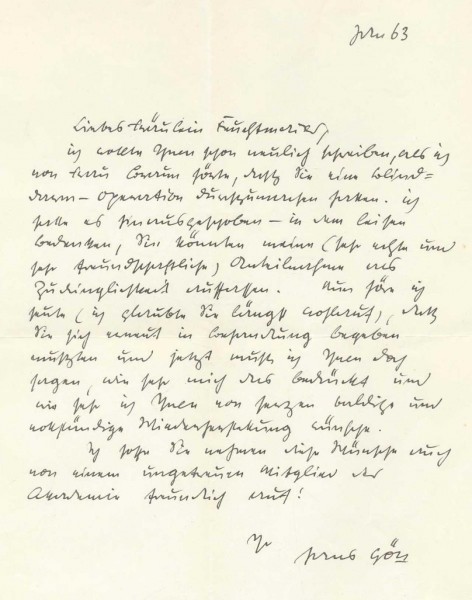 Jan 63
Liebes Fräulein Feuchtmeier,
ich wollte Ihnen schon neulich schreiben, als ich
von Frau hörte, daß Sie eine Blind=
darm-Operation durchzumachen hatten. ich
hatte es hinausgeschoben – in dem leisen
Bedenken, Sie könnten meine (sehr echte und
sehr freundschaftliche) Anteilnahme als
Zudringlichkeit auffassen. Nun höre ich
heute (ich glaubte Sie längst wohlauf), daß
Sie sich erneut in Behandlung begeben
mußten und jetzt muß ich Ihnen doch
sagen, wie sehr mich das bedrückt und
wie sehr ich Ihnen von Herzen baldige und
vollständige Wiederherstellung wünsche.
Ich hoffe Sie nehmen diese Wünsche auch
von einem ungetreuen Mitglied der
Akademie freundlich auf!
Ihr